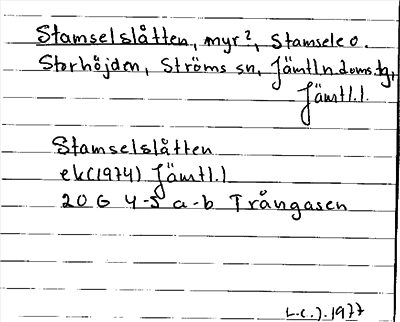 Stamselslåtten, myr?, Stamsele o.
Storhöjden, Ströms sn, Jämtl.n.doms.tg,
Jämtl.l.
Stamselslåtten
ek(1974) Jämtl.l
20 G 4-5 a-b Trångasen
L.C.J. 1977